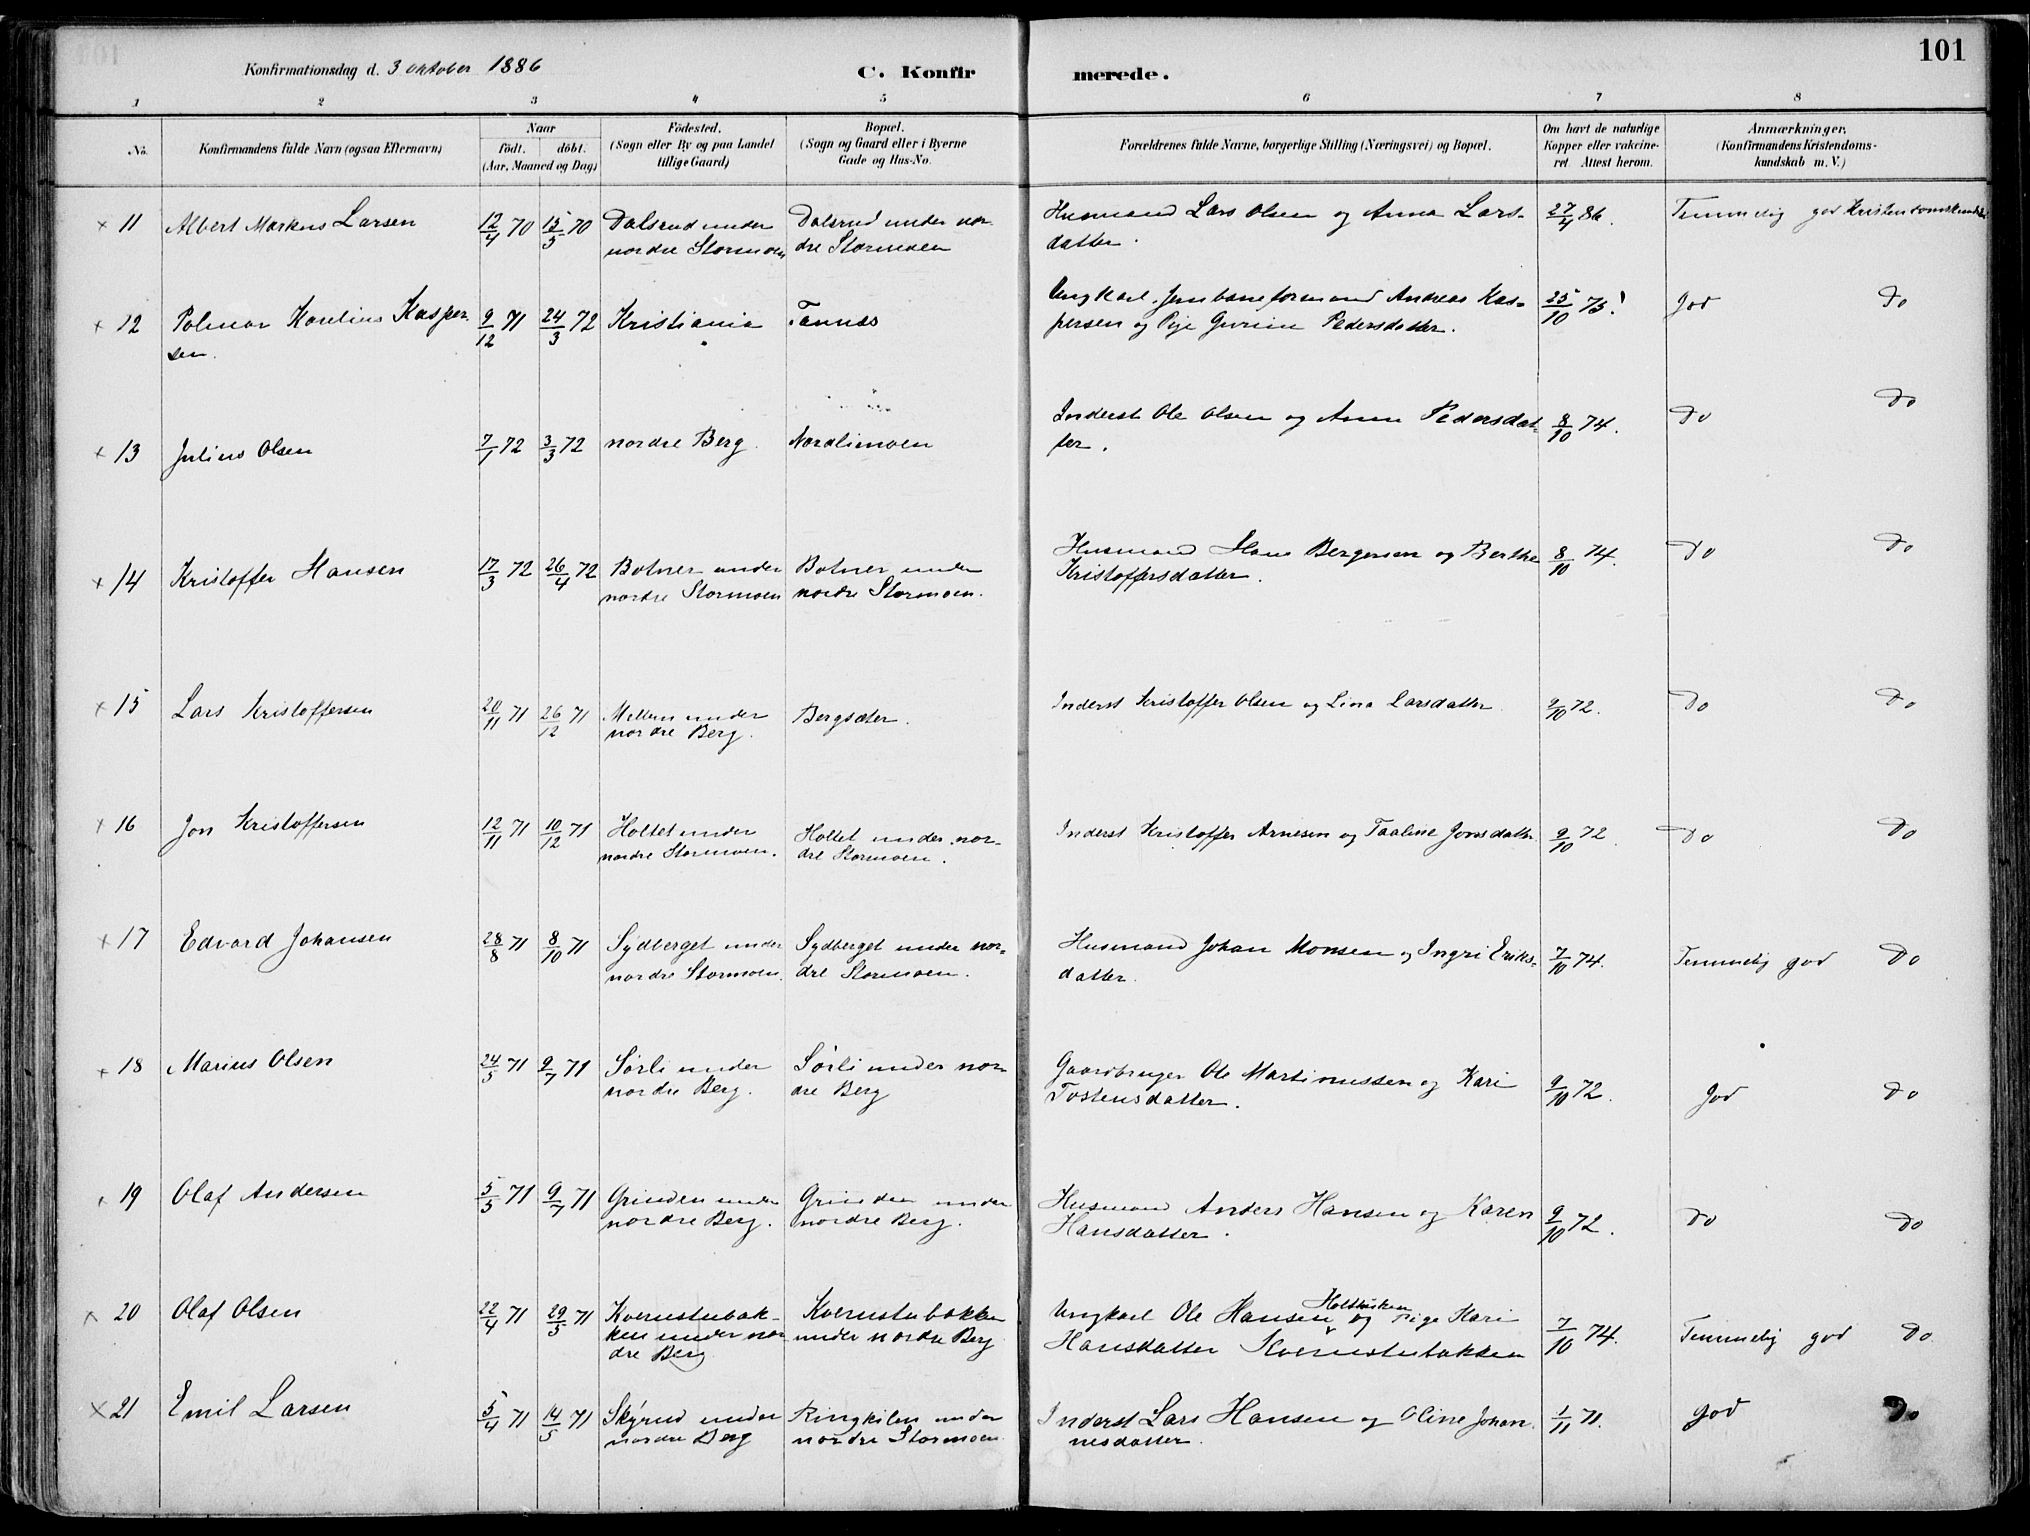 101
Konfirmationsdag d. 3 oktober 1886
C. Konfir merede.
1 2 3 4 5 6 7 8
No. Konfirmandens fulde Navn (ogsaa Efternavn)
Naar
født. døbt.
(Aar, Maaned og Dag)
Fødested.
(Sogn eller By og paa Landet
tillige Gaard)
Bopæl.
(Sogn og Gaard eller i Byerne
Gade og Hus-No.
Forældrenes fulde Navne, borgerlige Stilling (Næringsvei) og Bopæl.
Om havt de naturlige
Kopper eller vakcine-
ret. Attest herom.
Anmærkninger.
(Konfirmandens Kristendoms-
kundskab m. V.)
× 11 Albert Markus Larsen 12/4 70 15/5 70 Dalsrud under Dalsrud under nor- Husmand Lars Olsen og Anna Lars- 27/4 86. Temmelig god Kristendomskundskab
nordre Stormoen dre Stormoen datter.
× 12 Palmar Karelius Kasper- 9/12 71 24/3 72 Kristiania Tannes Ungkarl Jernbaneformand Andreas Kas- 25/10 75! God Do
sen. persen og Pige Gurine Pedersdatter.
× 13 Julius Olsen 7/1 72 3/3 72 nordre Berg. Nordlimoen Inderst Ole Olsen og Anne Pedersdat- 8/10 74. Do Do
ter.
× 14 Kristoffer Hansen 17/3 72 26/4 72 Botner under Botner under Husmand Hans Bergersen og Berthe 8/10 74. Do Do
nordre Stormoen nordre Stormoen. Kristoffersdatter.
× 15 Lars Kristoffersen 20/11 71 26/12 71 Mellem under Bergsæter. Inderst Kristoffer Olsen og Lina Larsdatter 9/10 72. Do Do
nordre Berg.
× 16 Jon Kristoffersen 12/11 71 10/12 71 Holtet under Holtet under nor- Inderst Kristoffer Arnesen og Taaline Jonsdatter 9/10 72 Do Do
nordre Stormoen. dre Stormoen.
× 17 Edvard Johansen 28/8 71 8/10 71 Sydberget under Sydberget under nor- Husmand Johan Monsen og Ingri Eriks- 7/10 74. Temmelig god Do
nordre Stormoen. dre Stormoen. datter.
× 18 Marius Olsen 24/5 71 9/7 71 Sørli under Sørli under nor- Gaardbruger Ole Martinussen og Kari 9/10 72. God Do
nordre Berg. dre Berg Tostensdatter.
× 19 Olaf Andersen 5/5 71 9/7 71 Grinden under Grinden under Husmand Anders Hansen og Karen 9/10 72. Do Do
nordre Berg. nordre Berg. Hansdatter.
× 20 Olaf Olsen 22/4 71 29/5 71 Kvernstubak- Kvernstubakken Ungkarl Ole Hansen og Pige Kari 7/10 74. Temmelig god Do
ken under nor under nordre Berg Hansdatter Kvernstubakken
dre Berg
× 21 Emil Larsen 5/4 71 14/5 71 Skyrud under Ringkilen under Inderst Lars Hansen og Oline Johan- 1/11 71. God Do
nordre Berg nordre Stormoen nesdatter.